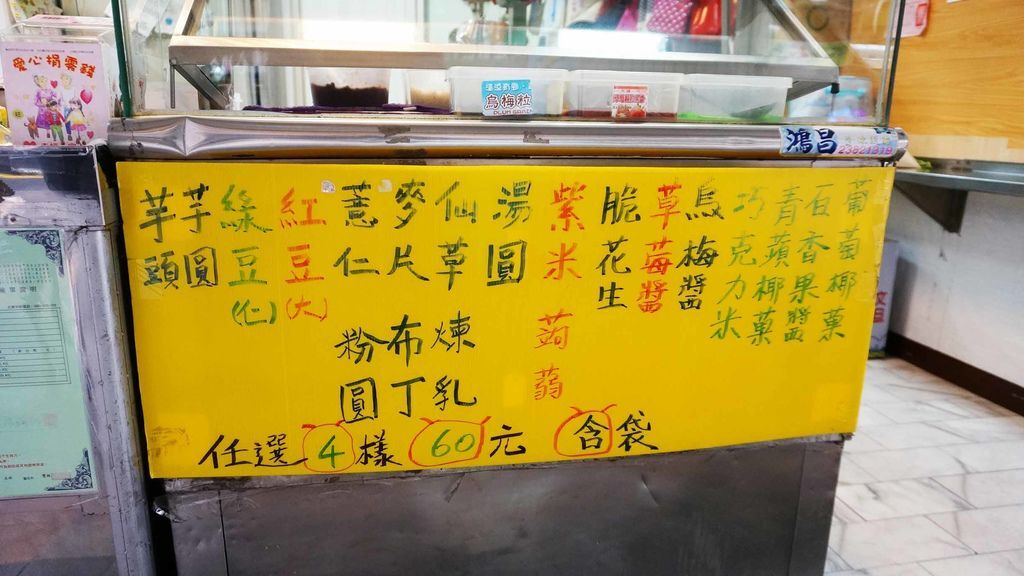 愛心捐零錢
烏梅粒
鴻昌 23621319
芋頭
芋圓
綠豆(仁)
紅豆(大)
薏仁
麥片
仙草
湯圓
紫米
脆花生
草莓醬
烏梅醬
巧克力米
青蘋椰菓
石香果醬
葡萄椰菓
粉圓
布丁
煉乳
蒟蒻
任選4樣 60元 含袋